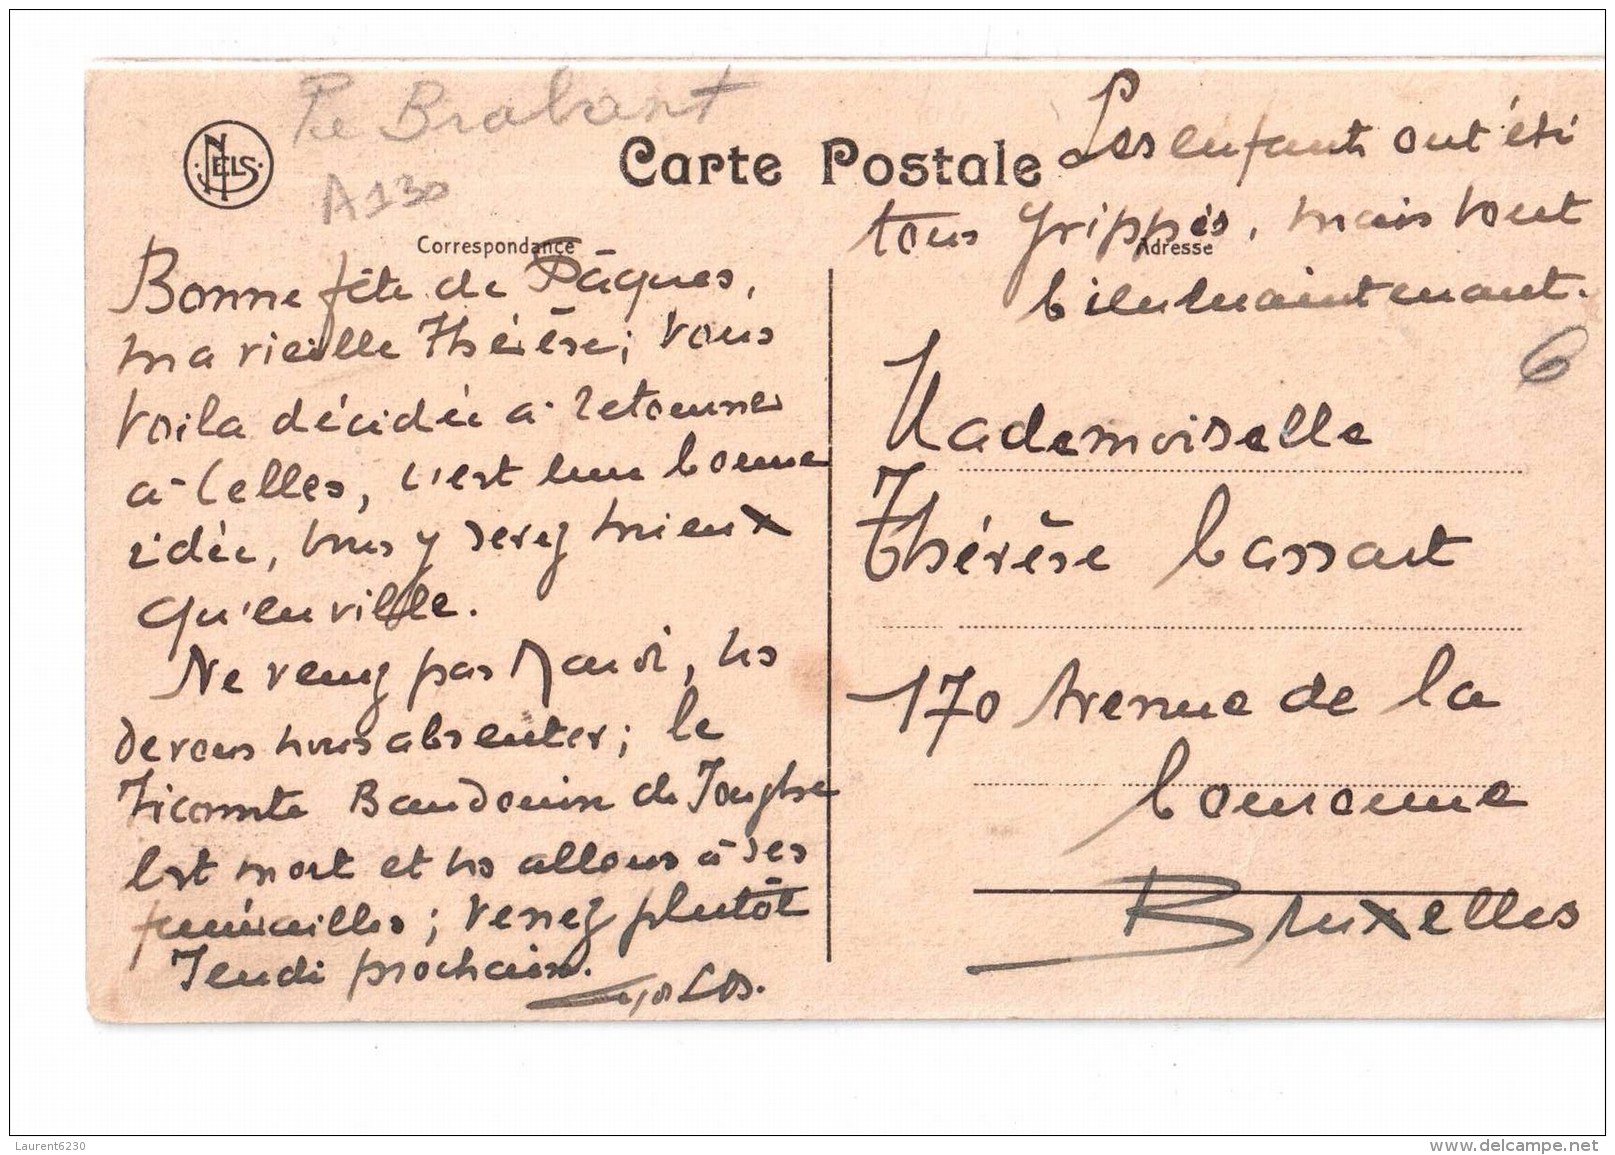 Pce Brabant
A130
NELS
Carte Postale
Correspondance
Adresse
Bonne fête de Pâques,
ma vieille Thérèse; vous
voila décidée à retourner
à Celles, c'est une bonne
idée, vous y serez mieux
qu'en ville.
Ne venez pas Mardi, ns
devons nous absenter; le
Vicomte Baudouin de Jonghe
est mort et ns allons à ses
funérailles; venez plutôt
Jeudi prochain.
Les enfants ont été
tous grippés, mais tout
bien maintenant.
6
Mademoiselle
Thérèse Cassart
170 Avenue de la
Couronne
Bruxelles
Laurent6230
www.delcampe.net